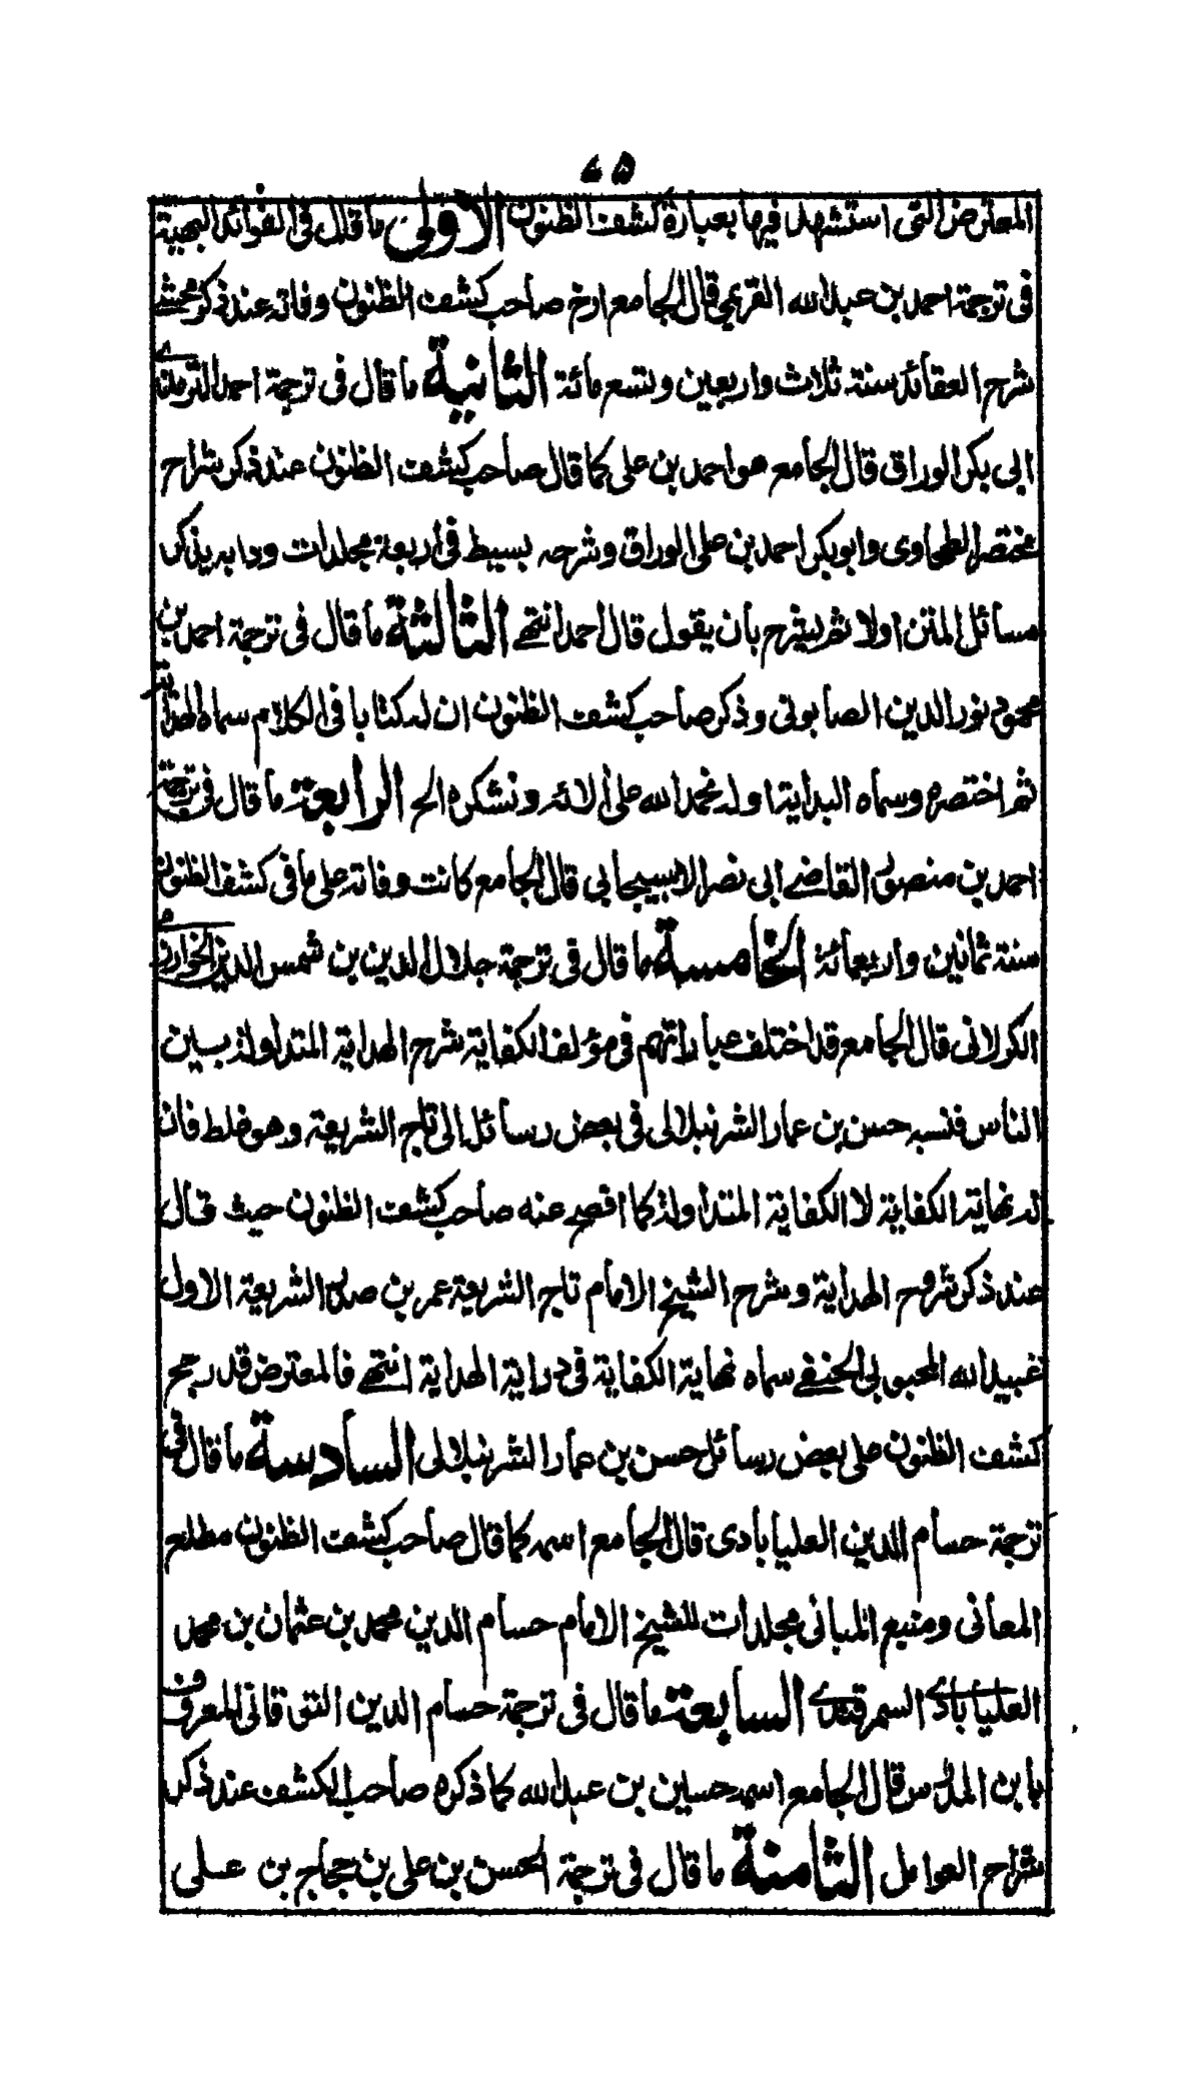 ٤٥
المعترض التى استشهد فيها بعبارة كشف الظنون الاولى ما قال فى الفوائد البهية
فى ترجمة احمد بن عبد الله القريمى قال الجامع ارخ صاحب كشف الظنون وفاته عند ذكر محشى
شرح العقائد سنة ثلاث واربعين وتسع مائة الثانية ما قال فى ترجمة احمد
ابى بكر الوراق قال الجامع هو احمد بن على كما قال صاحب كشف الظنون عند ذكر شراح
مختصر الطحاوى وابو بكر احمد بن على الوراق وشرحه بسيط فى اربعة مجلدات ودابه يذكر
مسائل المتن اولا ثم يشرح بان يقول قال احمد انتهے الثالثة ما قال فى ترجمة احمد بن
محمود نور الدين الصابونى وذكر صاحب كشف الظنون ان له كتابا فى الكلام سماه الهداية
ثم اختصره وسماه البداية اوله نحمد الله على الائه ونشكره الخ الرابعة ما قال فى ترجمة
احمد بن منصور القاضے ابى نصر الاسبيجابى قال الجامع كانت وفاته على ما فى كشف الظنون
سنة ثمانين واربعمائة الخامسة ما قال فى ترجمة جلال الدين بن شمس الدين الخوارزمى
الكرلانى قال الجامع قد اختلف عباراتهم فى مؤلف الكفاية شرح الهداية المتداولة بين
الناس فنسبه حسن بن عمار الشرنبلالى فى بعض رسائله الى تاج الشريعة وهو غلط فان
له نهاية الكفاية لا الكفاية المتداولة كما افصح عنه صاحب كشف الظنون حيث قال
عند ذكر شروح الهداية وشرح الشيخ الامام تاج الشريعة عمر بن صدر الشريعة الاول
عبيد الله المحبوبى الحنفے سماه نهاية الكفاية فى دراية الهداية انتهے فالمعترض قد رجح
كشف الظنون على بعض رسائل حسن بن عمار الشرنبلالى السادسة ما قال فى
ترجمة حسام الدين العليابادى قال الجامع اسمه كما قال صاحب كشف الظنون مطلع
المعانى ومنبع المبانى مجلدات للشيخ الامام حسام الدين محمد بن عثمان بن محمد
العليابادے السمرقندے السابعة ما قال فى ترجمة حسام الدين التوقاتى المعروف
بابن المدرس قال الجامع اسمه حسين بن عبد الله كما ذكره صاحب الكشف عند ذكر
شراح العوامل الثامنة ما قال فى ترجمة الحسن بن على بن حجاج بن على